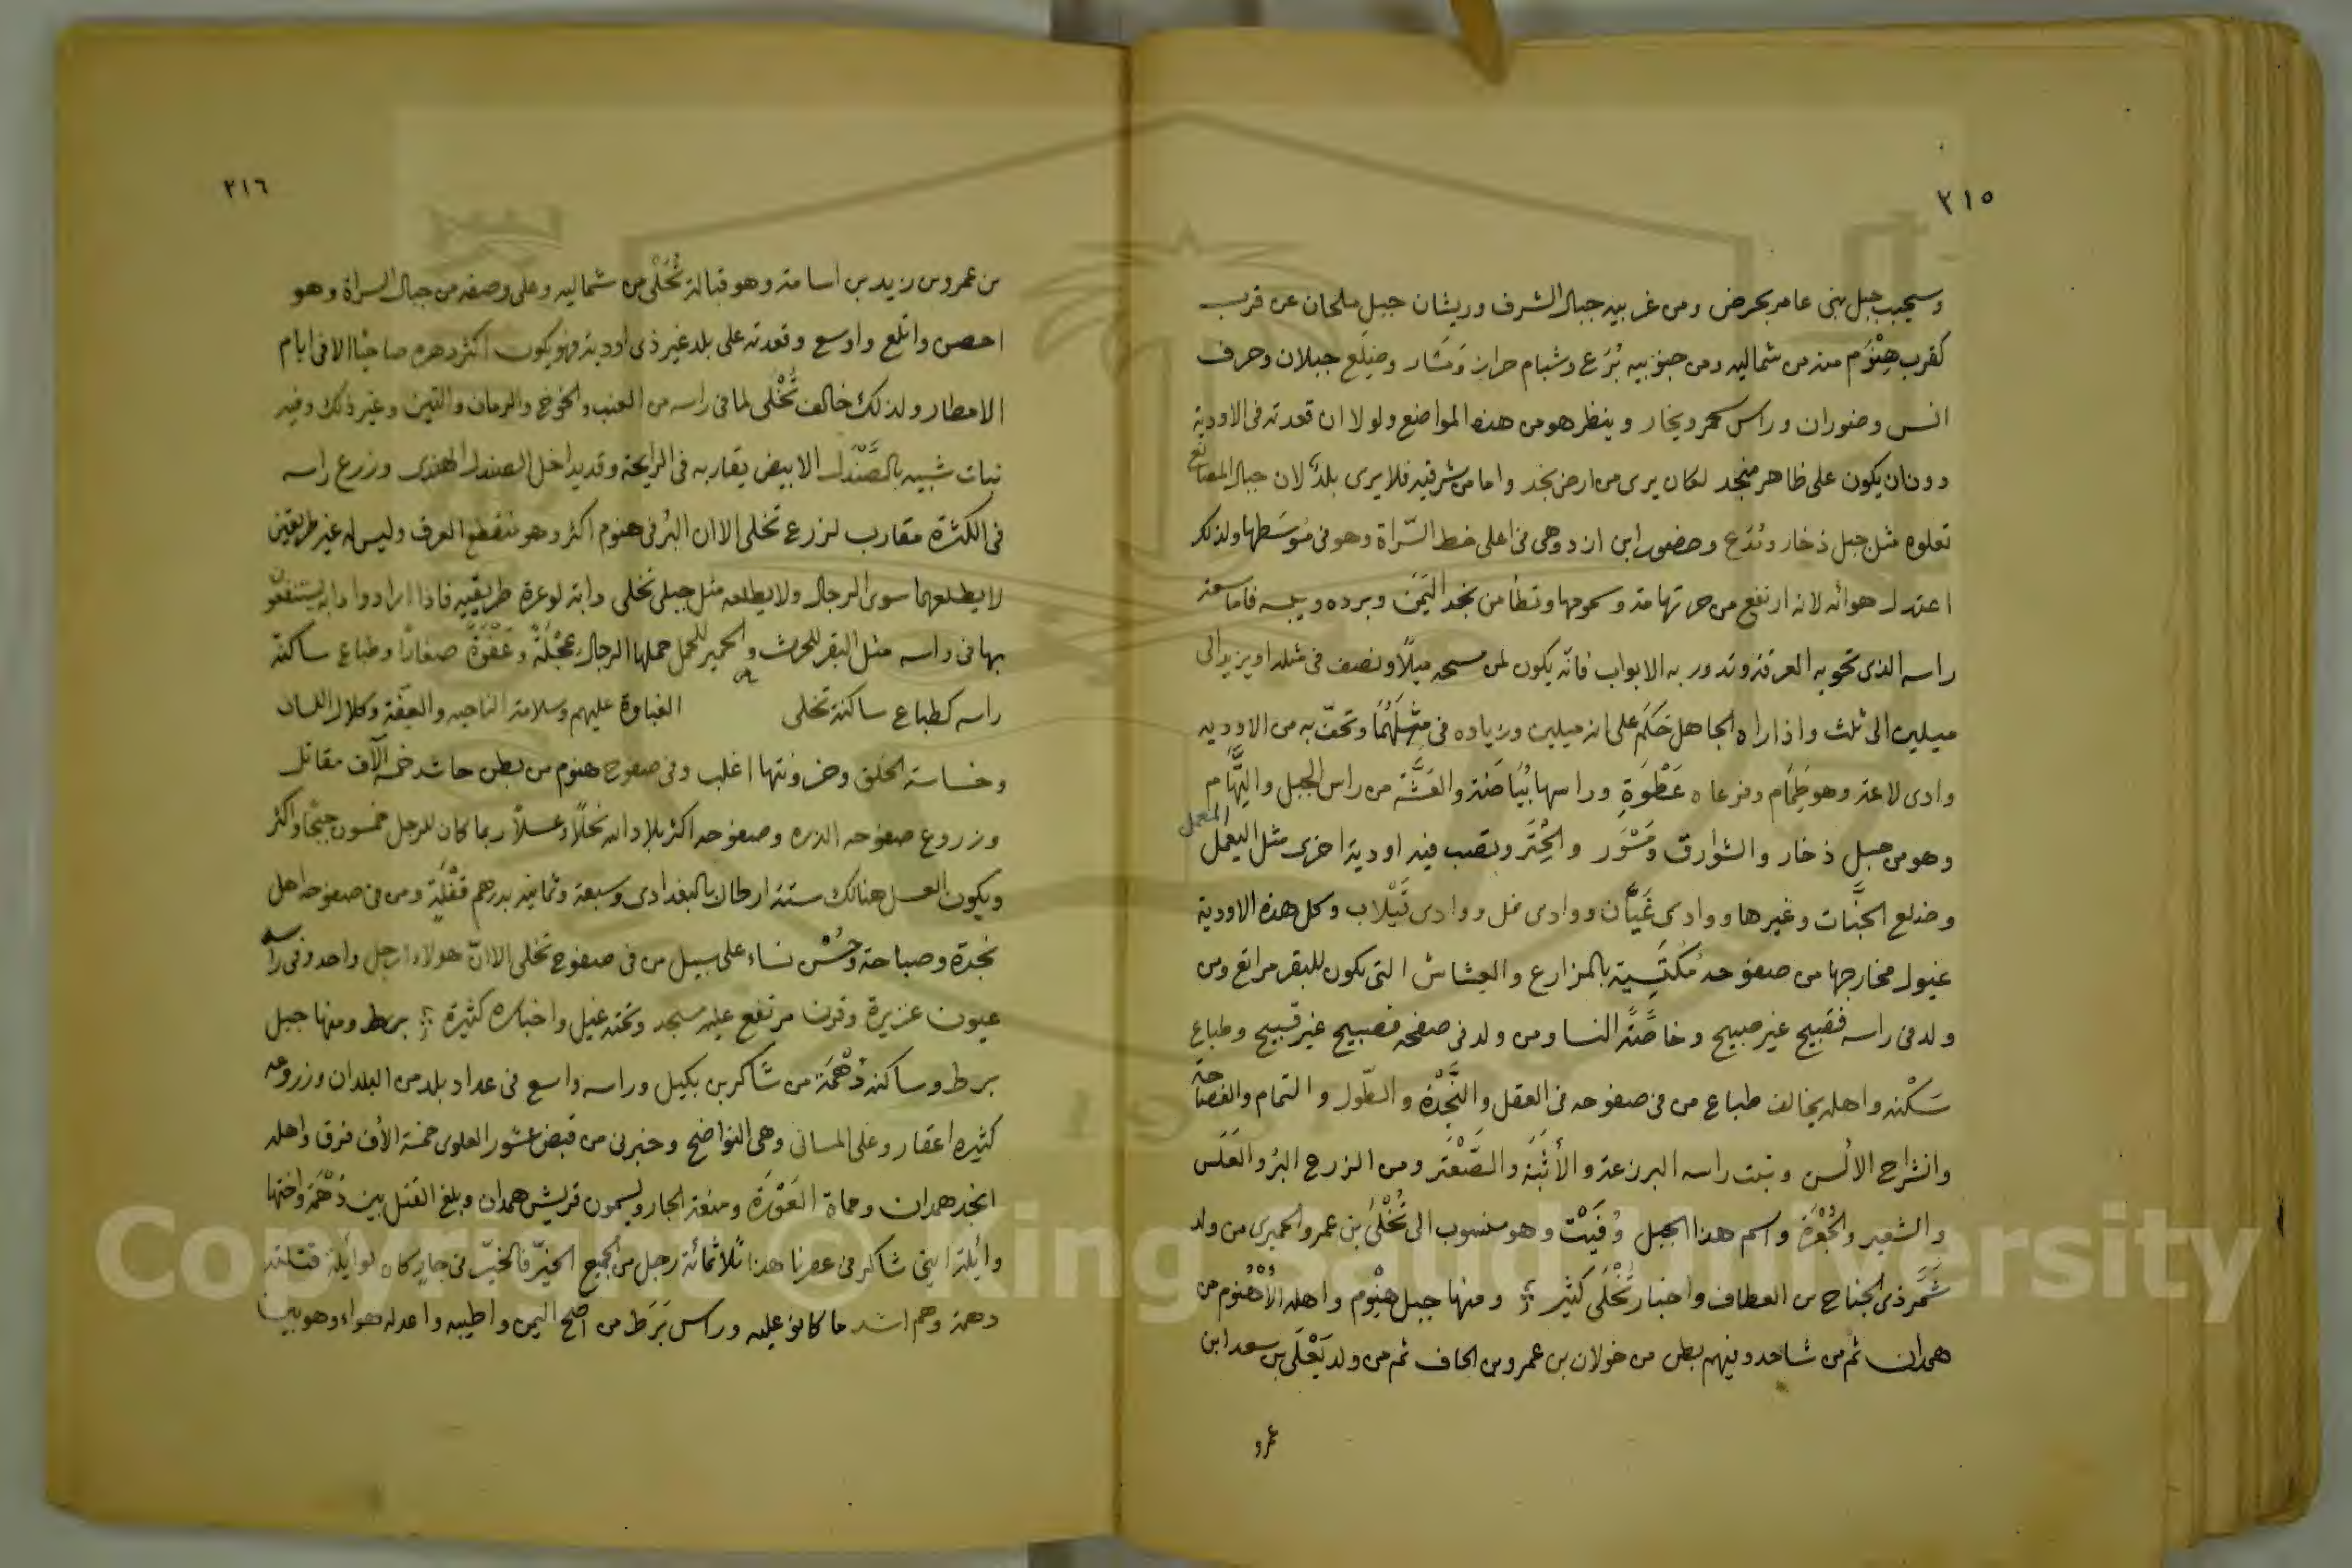 ٣١٥
وسيجيب جبل بنى عامر بحرض ومن غربيه جبال الشرف وريشان جبل ملحان عن قرب
كقرب هِنْوَم منه من شماليه ومن جنوبيه بُرَع وشبام حراز ومَسَار وضِلَع جبلان وحرف
انس وضوران وراس سحمر ويخار وينظر هو من هذه المواضع ولولا ان قعدته فى الاودية
دون ان يكون على ظاهر منجد لكان يرى من ارض نجد واما من شرقيه فلا يرى بلد لان جبال المصانع
تعلوه مثل جبل ذخار وتُدَع وحضور ابن ازد وهى فى اعلى خط السّراة وهو فى مُوسَطها ولذلك
اعتدل هوائه لانه ارتفع من حر تهامة وسمومها وتطأمن نجد اليَمَن وبرده ويبسه فاما سعة
راسه الذى تحويه العرقة وتدور به الابواب فانّه يكون لمن مسحه ميلاً ونصف فى مثله او يزيد الى
ميلين الى ثلث واذا راه الجاهل حَكَم على انه ميلين وزياده فى مِثْلَهُمَا وتحفّ به من الاوديه
وادى لاعة وهو طِمَام وفرعاه عَطْوَةِ وراسها بُيَاضَة والعَشَّة من راس الجبل والتهّام
وهو من جبل ذخار والشوارق ومَسْوَر والحِتَر وتصب فيه اودية اخرى مثل اليعمل
المعمل
وضلع الجنَّات وغيرها ووادى عَيَّان ووادى نمل ووادى تَيْلاب وكل هذه الاودية
غيول مخارجها من صفوحه مُكتَسِية بالمزارع والعشاش التى يكون للبقر مراتع ومن
ولد فى راسه فقبيح غير صبيح وخاصَّة النسا ومن ولد فى صفحه فصبيح غير قبيح وطباع
سَكْنه واهله يخالف طباع من فى صفوحه فى العقل والنَّجْدة والطّول والتمام والفصاحة
وانشراح الالسن ونبت راسه البرزعة والأثبَة والصَّعْتَر ومن الزرع البُرّ والعَلَس
والشعير والجُعْرَة واسم هذا الجبل وُقَيْت وهو منسوب الى تُخْلَى بن عمرو الحميرى من ولد
شَمَّر ذى الجناح بن العطاف واخبار تُخْلَى كثير ومنها جبل هِنْوم واهله الأُهْنُوم من
همدان ثم من شاحد وفيهم بطن من خولان بن عمرو بن الحاف ثم من ولد يَعْلَى بن سعد ابن
عمرو
٣١٦
من عمرو بن زيد بن اسامة وهو قبالة تُخْلَى من شماليه وعلى وصفه من جبال السراة وهو
احصن واتلع واوسع وقعدته على بلد غير ذى اودية فهو يكون اكثر دهره صاحيًا الا فى ايام
الامطار ولذلك خالف تُخْلى لما فى راسه من العنب والخوخ والرمان والتين وغير ذلك وفيه
نبات شبيه بالصَّنْدَل الابيض يقاربه فى الرايحة وقد يداخل الصندل الهندى وزرع راسه
فى الكثرة مقارب لزرع تخلى الا ان البُرّ فى هنوم اكثر وهو منقطع العرف وليس له غير طريقين
لا يطلعهما سوى الرجال ولا يطلعه مثل جبلى تخلى دابة لوعرة طريقيه فاذا ارادوا دابه يستنفعو
بها فى راسه مثل البقر للحرث والحمير للحمل حملها الرجال عِجْلَةً وعَفْوَةً صغارًا وطباع ساكنة
راسه كطباع ساكنة تخلى الغباوة عليهم وسلامة الناحيه والعِفّة وكلال اللسان
وخساسة الخلق وخزونتها اغلب وفى صفوح هنوم من بطن حاشد خمسة آلاف مقاتل
وزروع صفوحه الذره وصفوحه اكثر بلاد الله نحلًا وعسلاً ربما كان للرجل خمسون جبْحًا واكثر
ويكون العسل هنالك ستة ارطال بالبغدادى وسبعة وثمانية بدرهم قفْلَةٍ ومن فى صفوحه اهل
نجدة وصباحة وحُسْن نساء على سبيل من فى صفوح تخلى الا انّ هولاء ارجل واحد وفى راسه
عيون عزيرة وقرن مرتفع عليه مسجد وتحته غيل واخباره كثيرة برط ومنها جبل
برط وساكنه دُهْمَة من شاكر بن بكيل وراسه واسع فى عداد بلد من البلدان وزروعه
كثيره اعقار وعلى المسانى وهى النواضح وخبرنى من قبض عشور العلوى خمسة الأف فرق واهله
انجد همدان وحماة العَوْرَة ومنعة الجار ويسمون قريش همدان وبلغ القتل بين دُهْمَة واختها
وائلة ابنى شاكر فى عصرنا هذا ثلاثمائة رجل من الجميع الخيّر فالخيّر فى جارٍ كان لوائلة قتلته
دهمة وهم اشد ما كانو عليه وراس بَرَط من اصح اليمن واطيبه واعدله هواء وهو بين